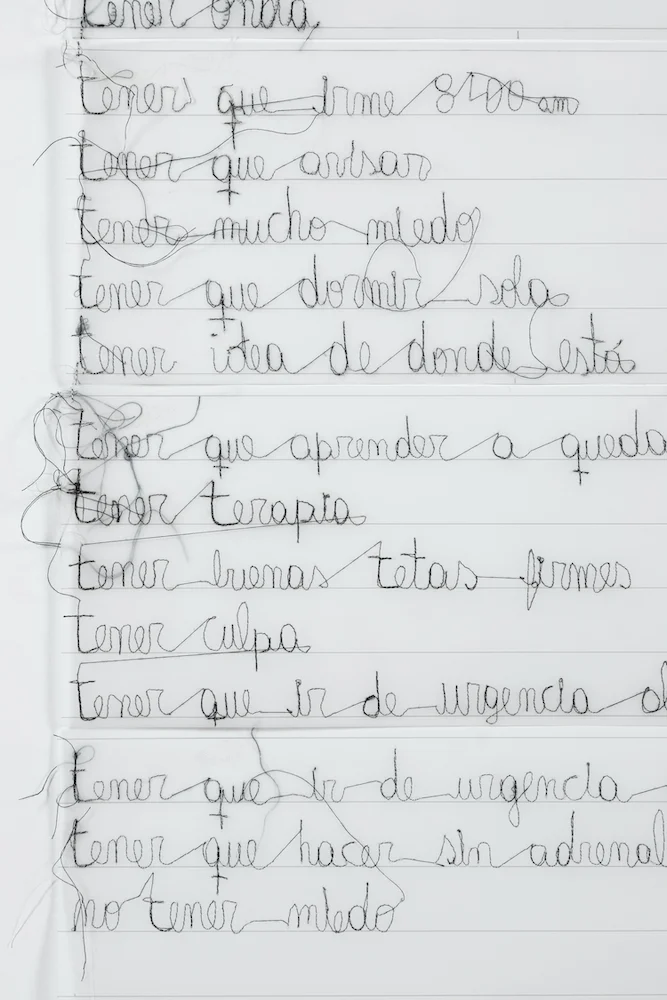 tener onda
tener que irme 8:00 am
tener que avisar
tener mucho miedo
tener que dormir sola
tener idea de donde está
tener que aprender a queda
tener terapia
tener buenas tetas firmes
tener culpa
tener que ir de urgencia al
tener que ir de urgencia
tener que hacer sin adrenal
no tener miedo